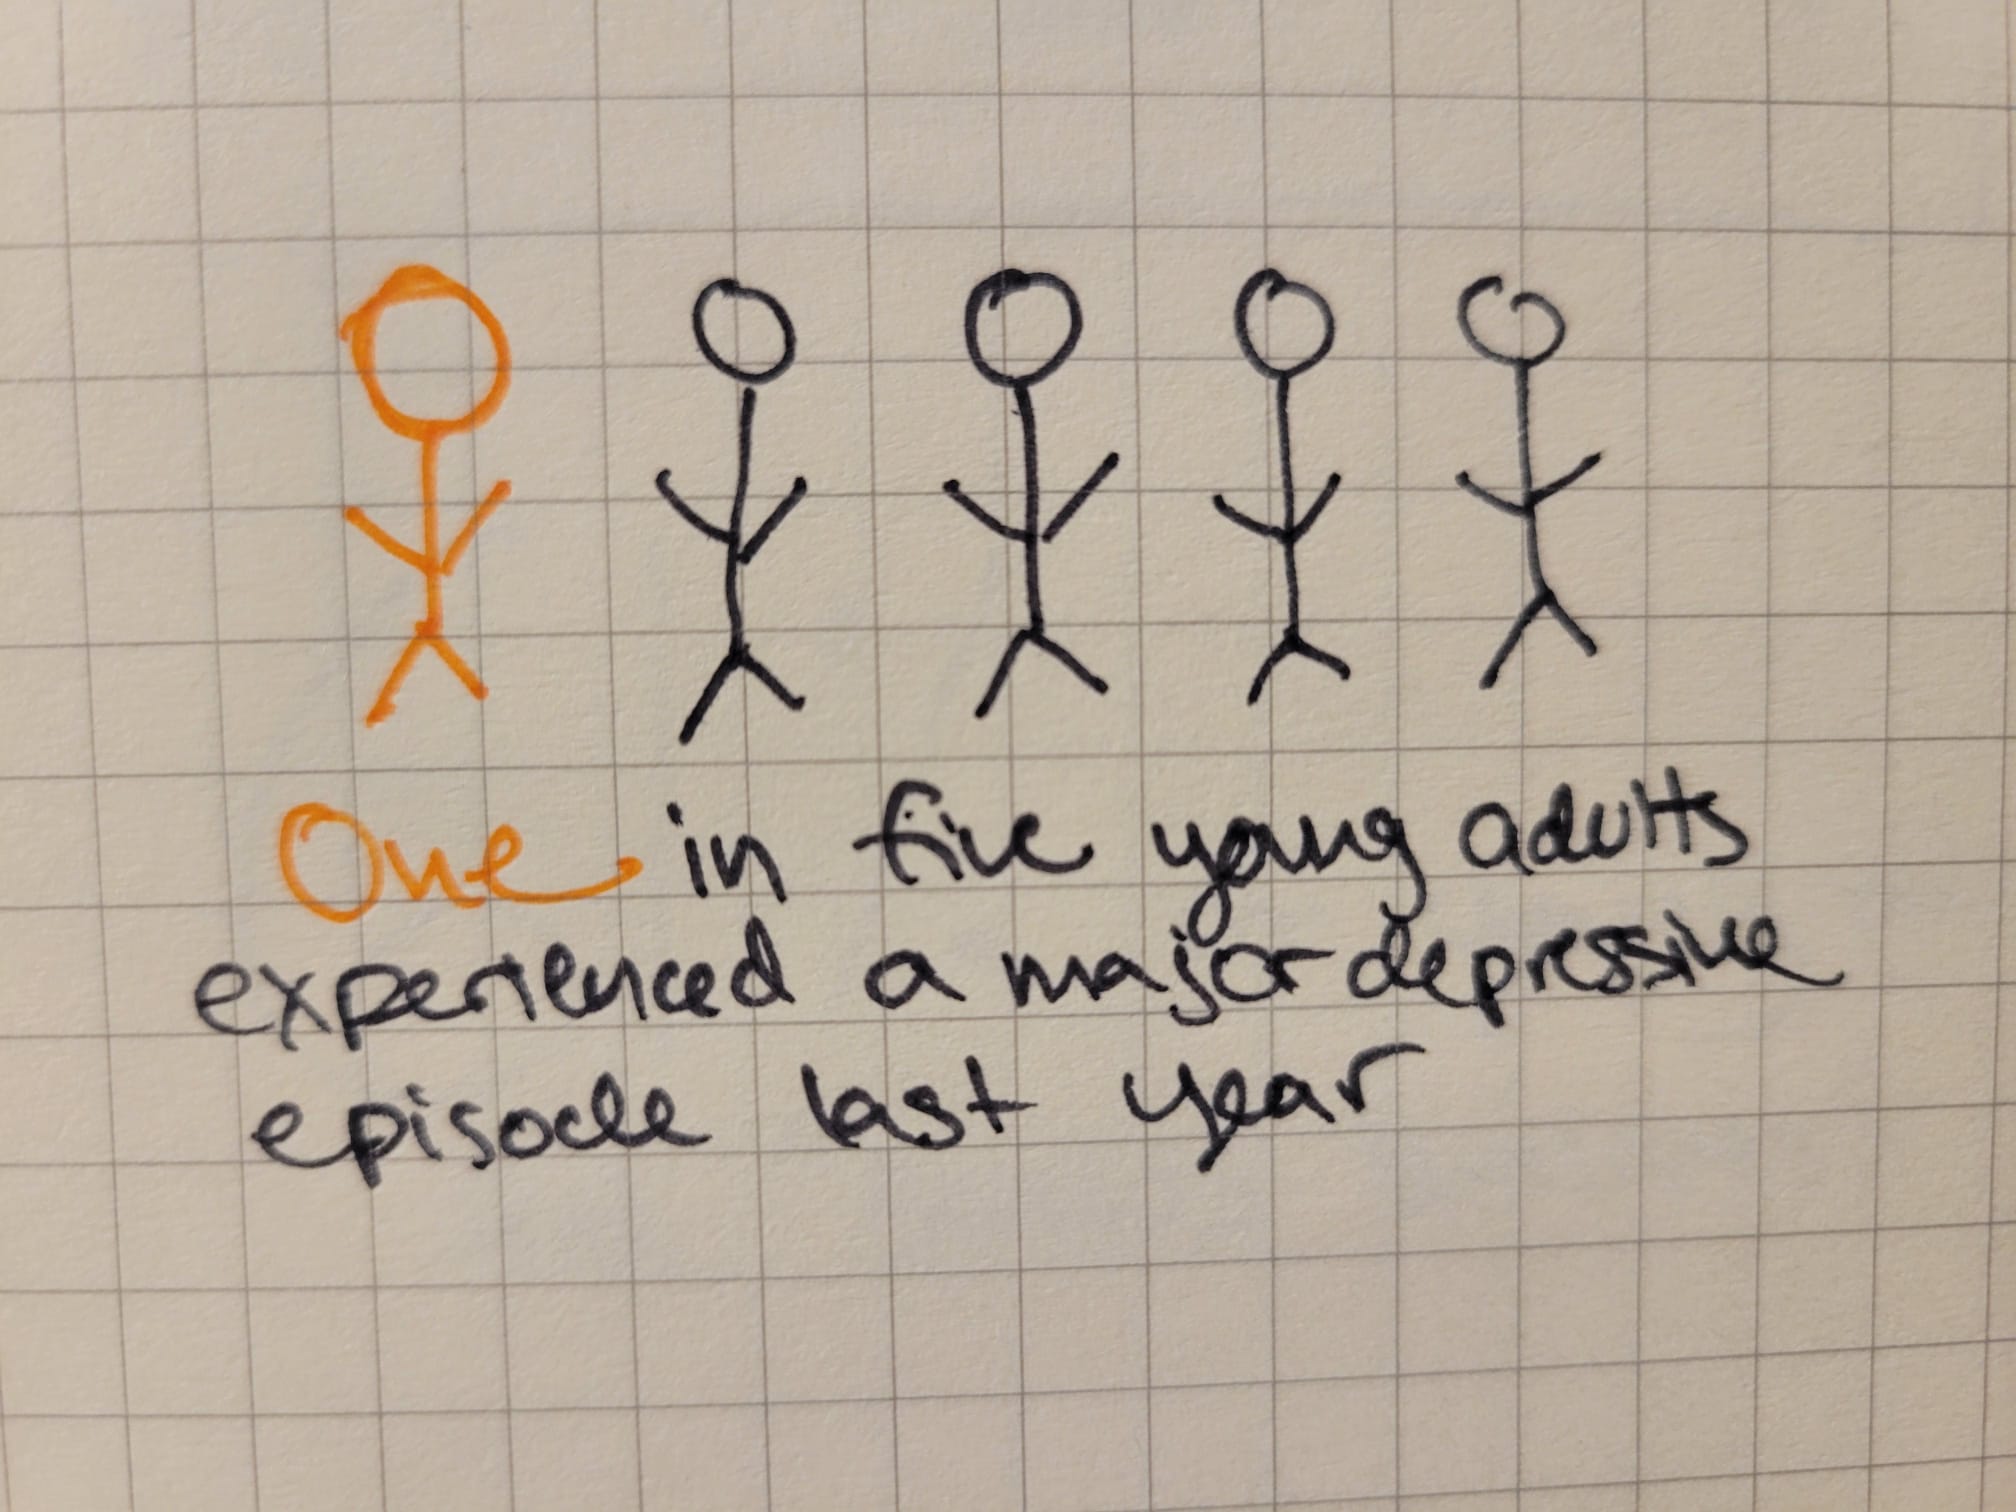 One in five young adults
experienced a major depressive
episode last year